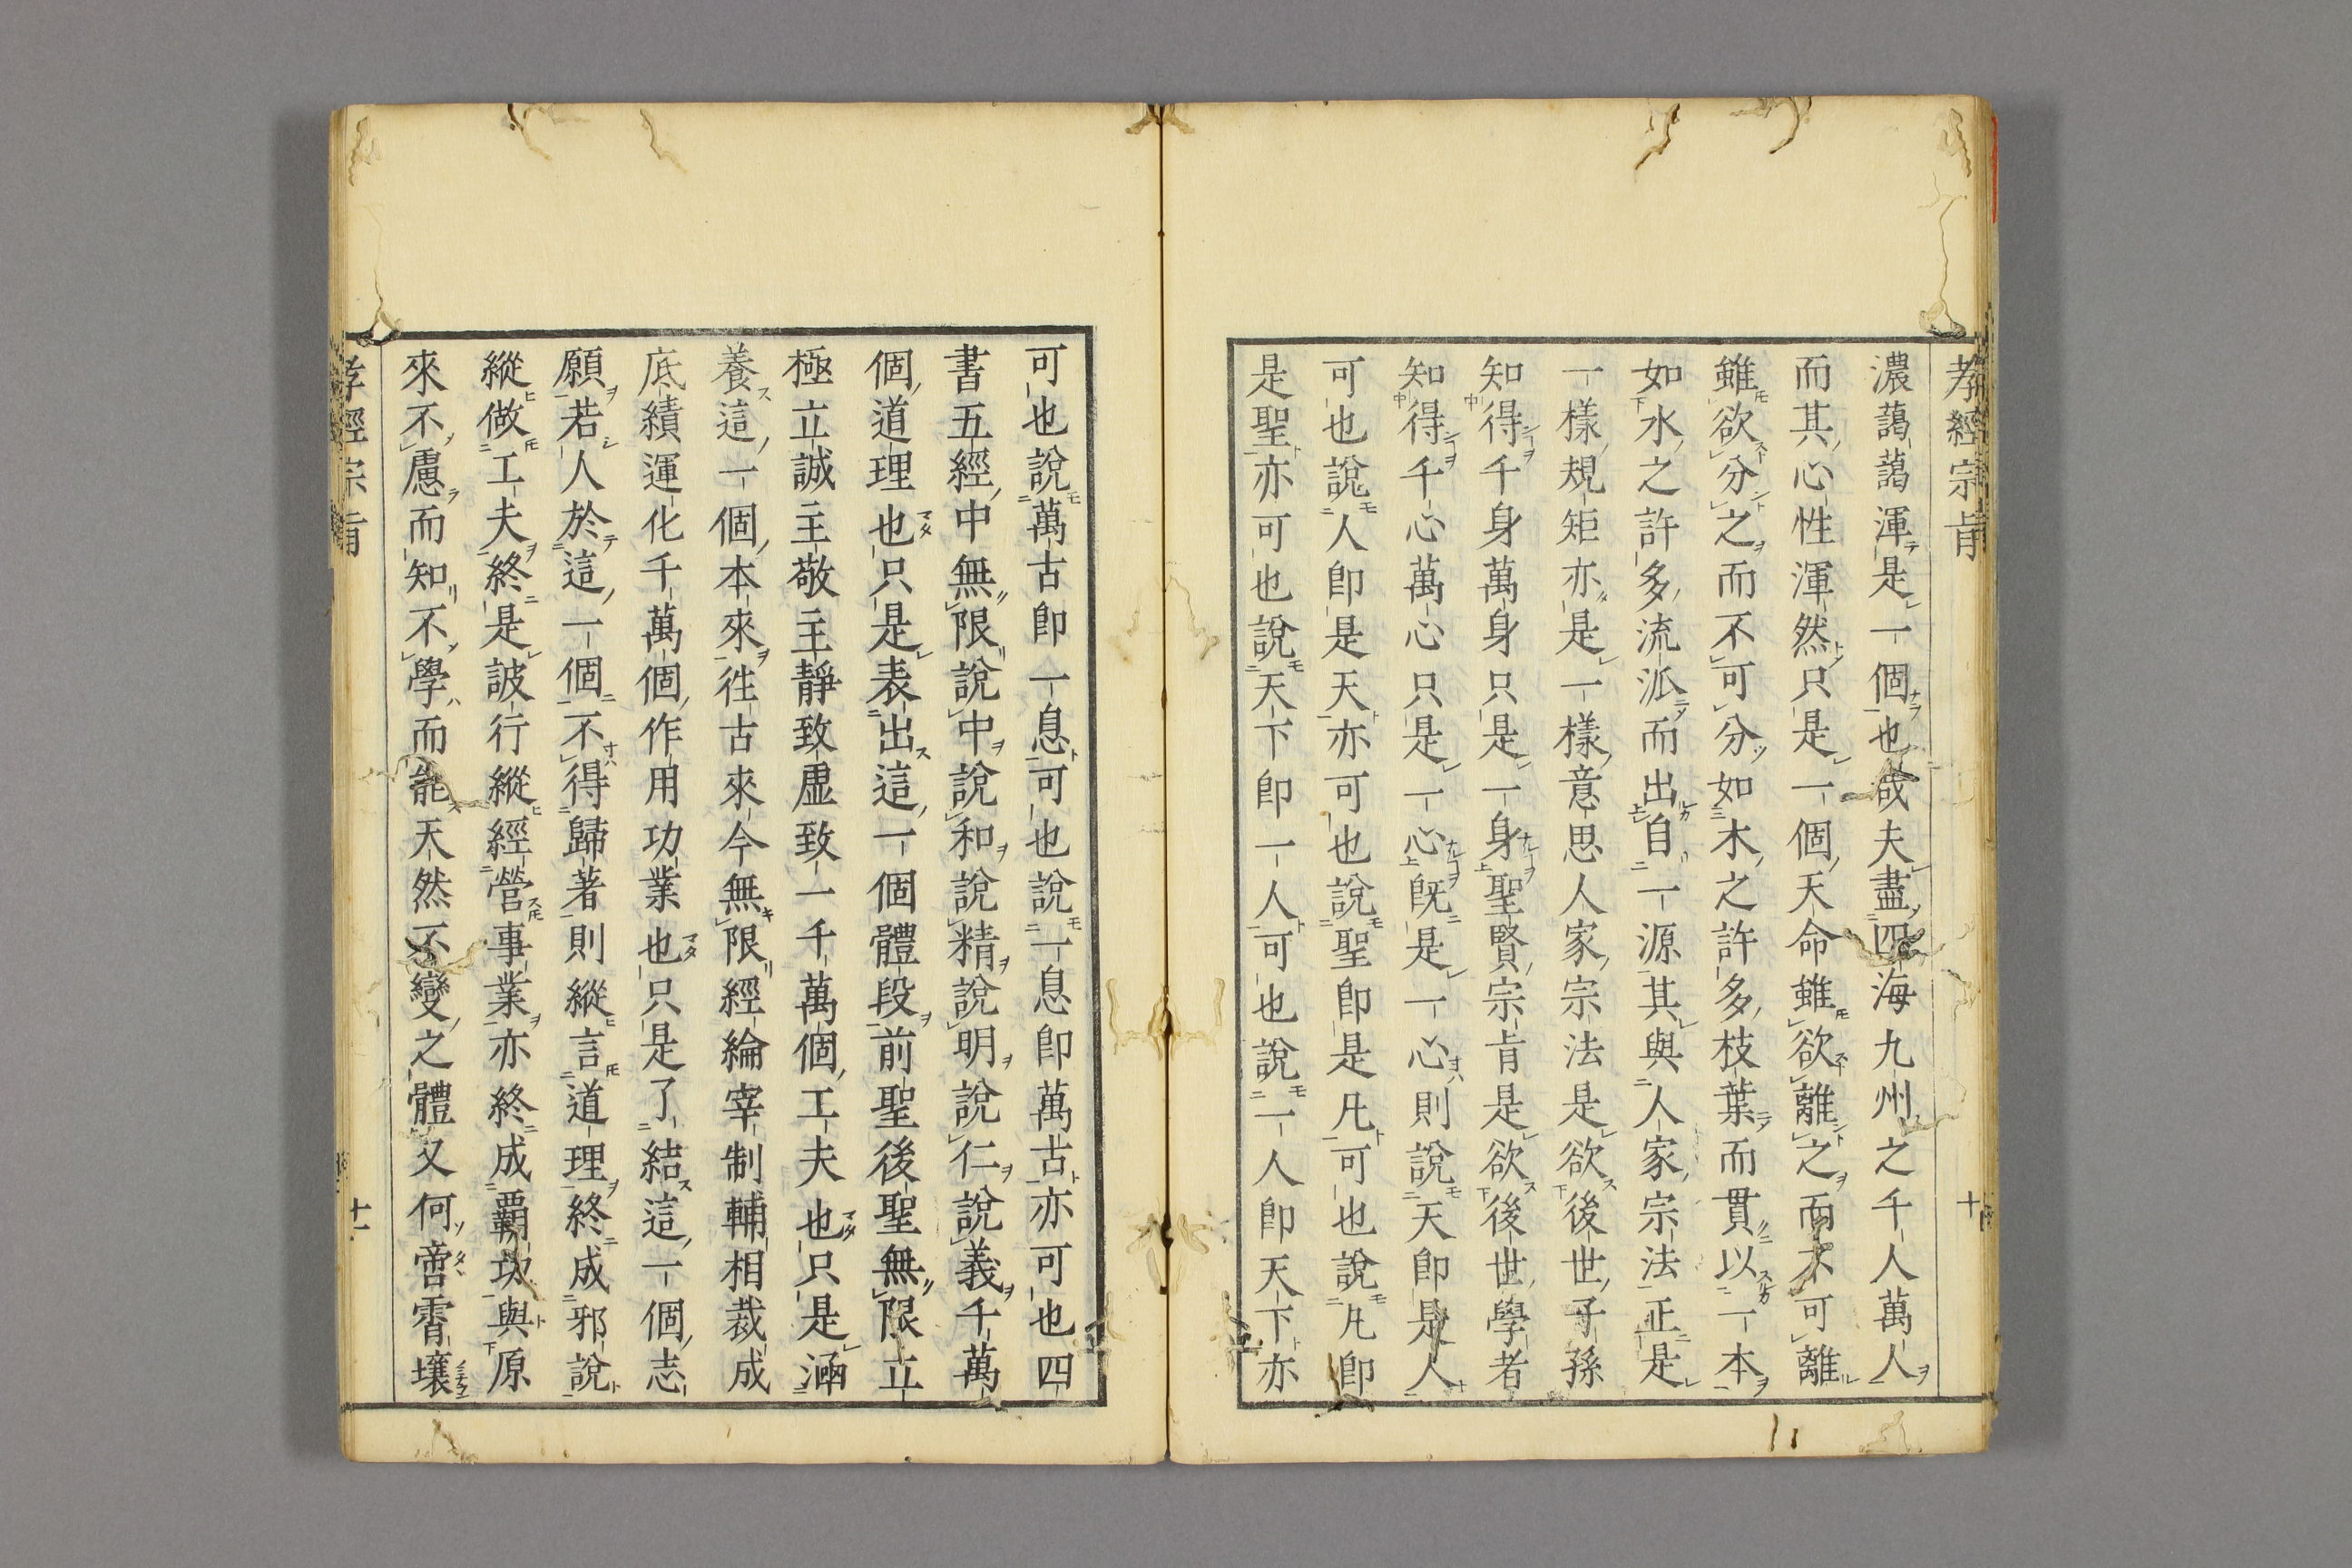 孝經宗旨
十
濃藹藹渾是一個也哉夫盡四海九州之千人萬人
而其心性渾然只是一個天命雖欲離之而不可離
雖欲分之而不可分如木之許多枝葉而貫以一本
如水之許多流派而出自一源其與人家宗法正是
一樣規矩亦是一樣意思人家宗法是欲後世子孫
知得千身萬身只是一身聖賢宗旨是欲後世學者
知得千心萬心只是一心既是一心則說天即是人
可也說人即是天亦可也說聖即是凡可也說凡即
是聖亦可也說天下即一人可也說一人即天下亦
可也說萬古即一息可也說一息即萬古亦可也四
書五經中無限說中說和說精說明說仁說義千萬
個道理也只是表出這一個體段前聖後聖無限立
極立誠主敬主靜致虛致一千萬個工夫也只是涵
養這一個本來徃古來今無限經綸宰制輔相裁成
底績運化千萬個作用功業也只是了結這一個志
願若人於這一個不得歸著則縱言道理終成邪說
縱做工夫終是詖行縱經營事業亦終成霸功與原
來不慮而知不學而能天然不變之體又何啻霄壤
孝經宗旨
十一